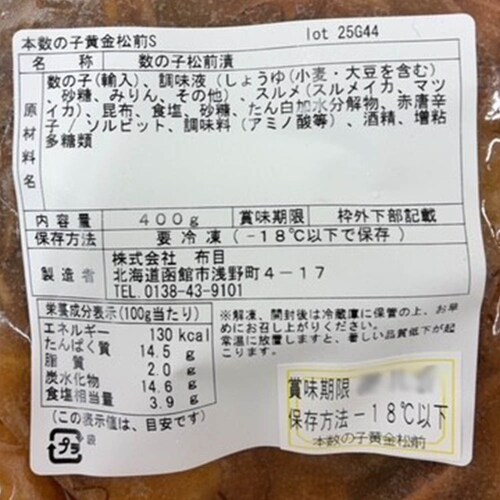 本数の子黄金松前S lot 25G44
名称 数の子松前漬
原材料名 数の子(輸入)、調味液(しょうゆ(小麦・大豆を含む)
、砂糖、みりん、その他)、スルメ(スルメイカ、マツ
イカ)、昆布、食塩、砂糖、たん白加水分解物、赤唐辛
子/ソルビット、調味料(アミノ酸等)、酒精、増粘
多糖類
内容量 400g 賞味期限 枠外下部記載
保存方法 要冷凍(-18℃以下で保存)
製造者 株式会社 布目
北海道函館市浅野町4-17
TEL.0138-43-9101
栄養成分表示(100g当たり)
エネルギー 130kcal
たんぱく質 14.5g
脂質 2.0g
炭水化物 14.6g
食塩相当量 3.9g
(この表示値は、目安です)
プラ 袋
※解凍、開封後は冷蔵庫に保管の上、お早
めにお召し上がりください。
常温に放置しますと、著しい品質低下が起
こります。
賞味期限
保存方法-18℃以下
本数の子黄金松前